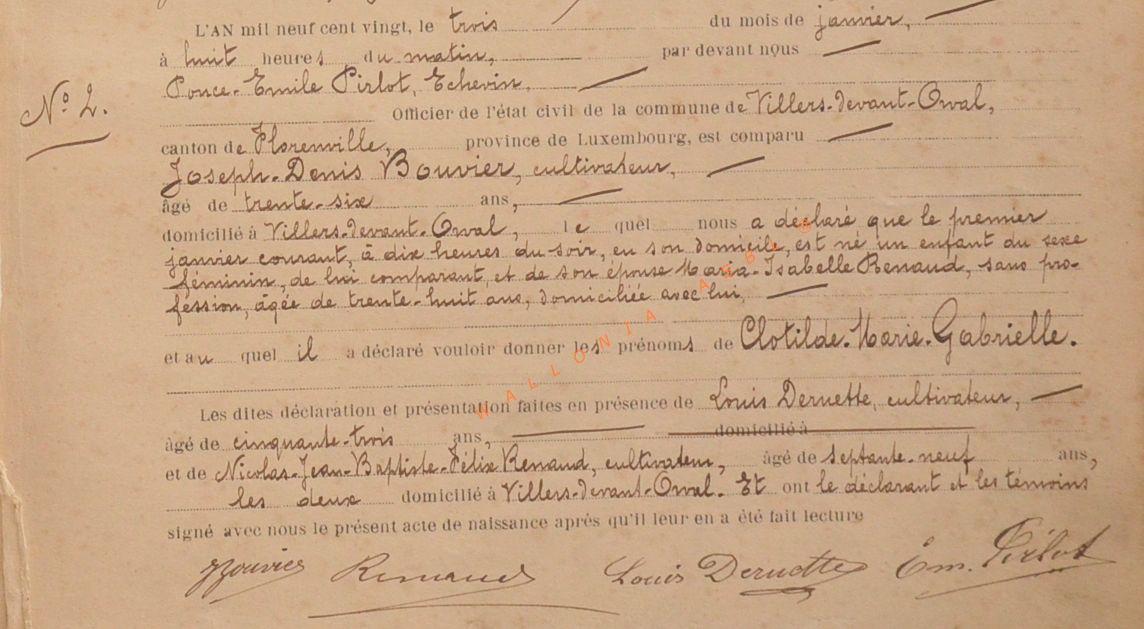 L'AN mil neuf cent vingt, le trois du mois de janvier,
à huit heures du matin, par devant nous
Ponce-Emile Pirlot, Echevin,
N° 2.
Officier de l'état civil de la commune de Villers-devant-Orval,
canton de Florenville, province de Luxembourg, est comparu
Joseph-Denis Bouvier, cultivateur,
âgé de trente-six ans,
domicilié à Villers-devant-Orval, le quel nous a déclaré que le premier
janvier courant, à dix heures du soir, en son domicile, est né un enfant du sexe
féminin, de lui comparant, et de son épouse Maria-Isabelle Renaud, sans pro-
fession, âgée de trente-huit ans, domiciliée avec lui,
et au quel il a déclaré vouloir donner les prénoms de Clotilde-Marie-Gabrielle.
Les dites déclaration et présentation faites en présence de Louis Dernette, cultivateur,
âgé de cinquante-trois ans, domicilié à
et de Nicolas-Jean-Baptiste-Félix Renaud, cultivateur, âgé de septante-neuf ans,
les deux domicilié à Villers-devant-Orval. Et ont le déclarant et les témoins
signé avec nous le présent acte de naissance après qu'il leur en a été fait lecture
JBouvier Renaud Louis Dernette Em. Pirlot
WALLONIA